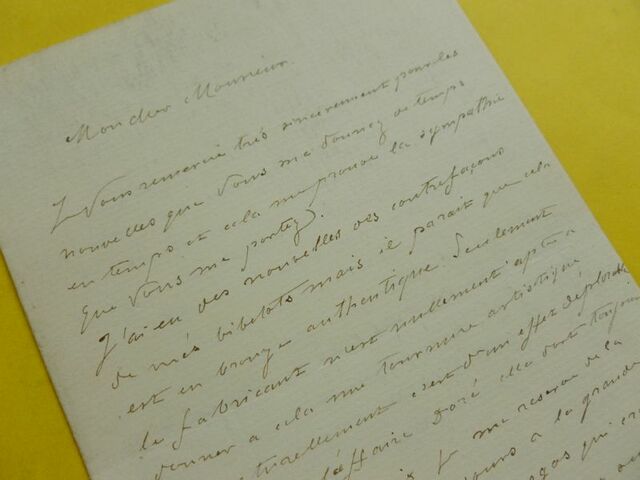 Mon cher Monsieur.
Je vous remercie très sincèrement pour les
nouvelles que vous me donnez de temps
en temps et cela me prouve la sympathie
que vous me portez.
J'ai eu des nouvelles des contrefaçons
de mes bibelots mais il parait que cela
est en bronze authentique. Seulement
le fabricant n'est nullement apte a
donner a cela une tournure artistique
naturellement c'est d'un effet déplorable
l'affaire Doré elle doit toujours
je me reserve de la
jours a la grande
qui